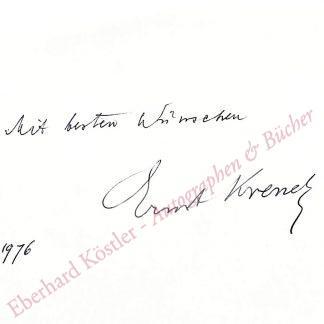 Mit besten Wünschen
Ernst Krenek
1976
Eberhard Köstler - Autographen & Bücher